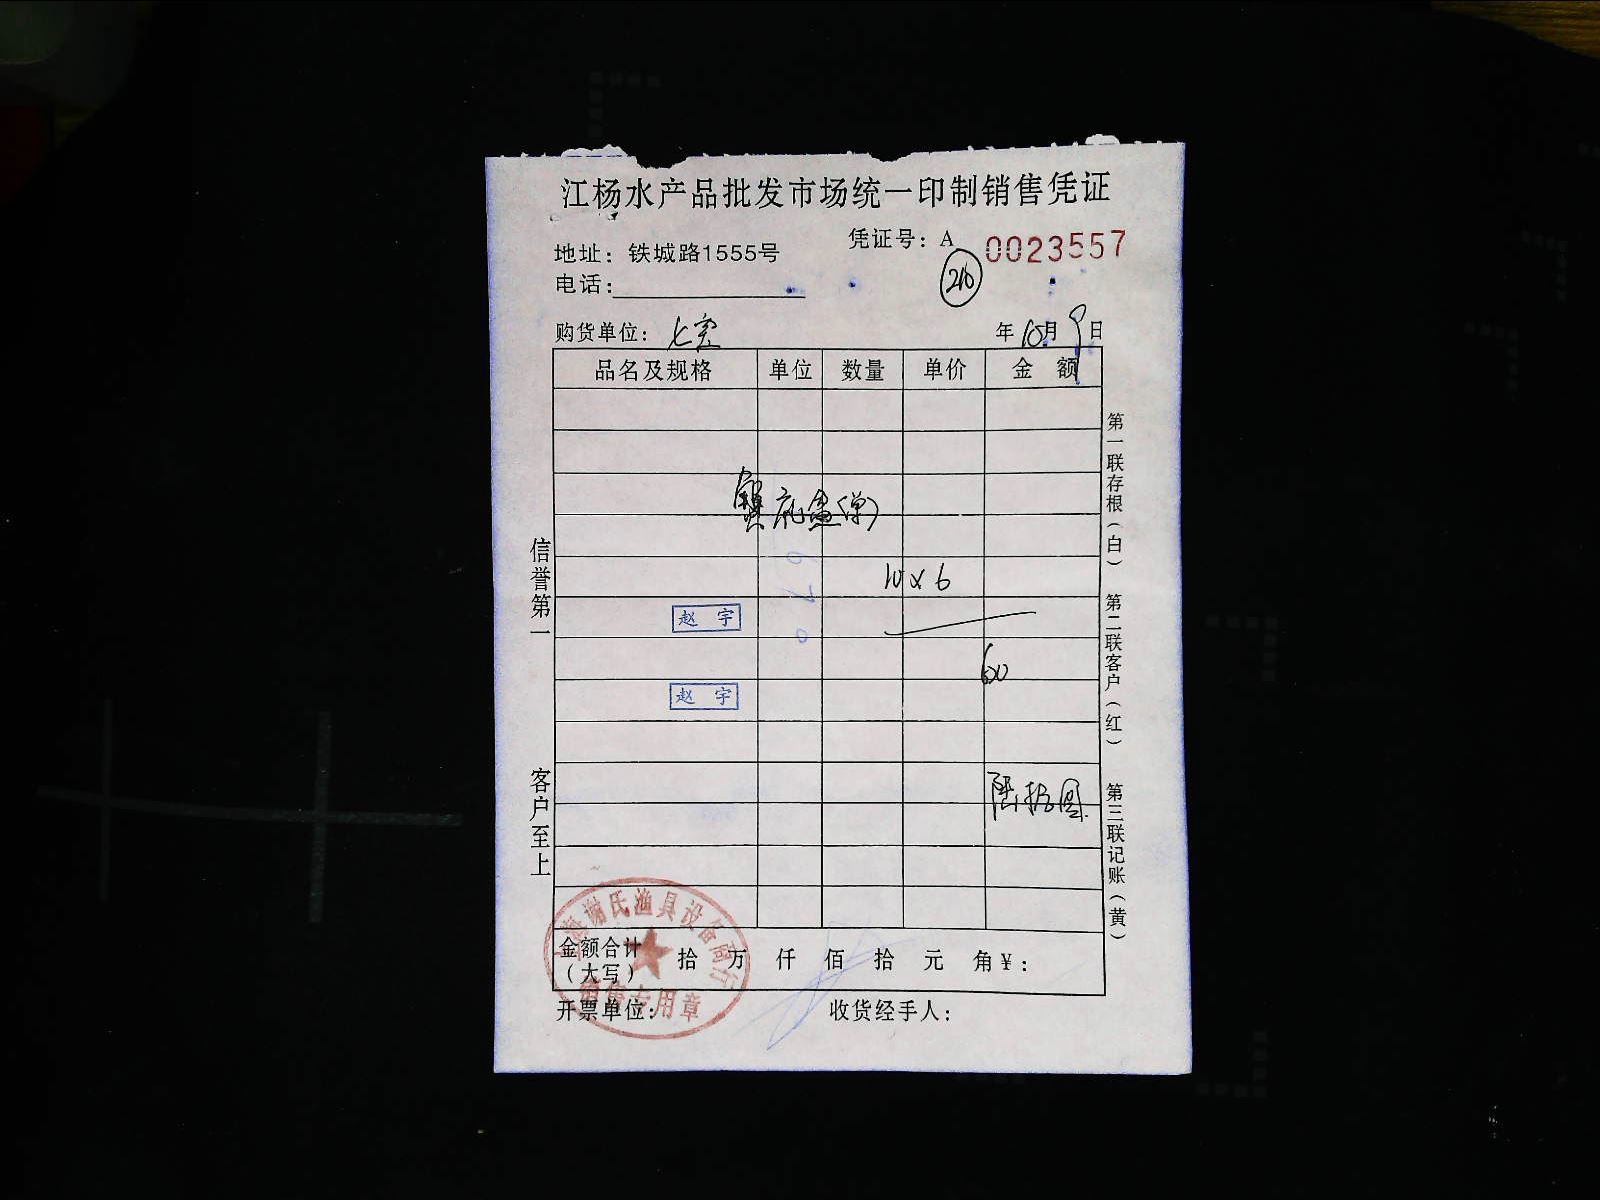 江杨水产品批发市场统一印制销售凭证
凭证号：A 0023557
地址：铁城路1555号
电话：
210
购货单位：七宝
年10月9日
品名及规格 单位 数量 单价 金额
礼盒(单)
670
10×6
赵宇
60
赵宇
陆拾圆
金额合计（大写） 拾 万 仟 佰 拾 元 角￥：
开票单位： 收货经手人：
信誉第一
客户至上
第一联存根（白）
第二联客户（红）
第三联记账（黄）
上海谢氏渔具设备商行
销售专用章